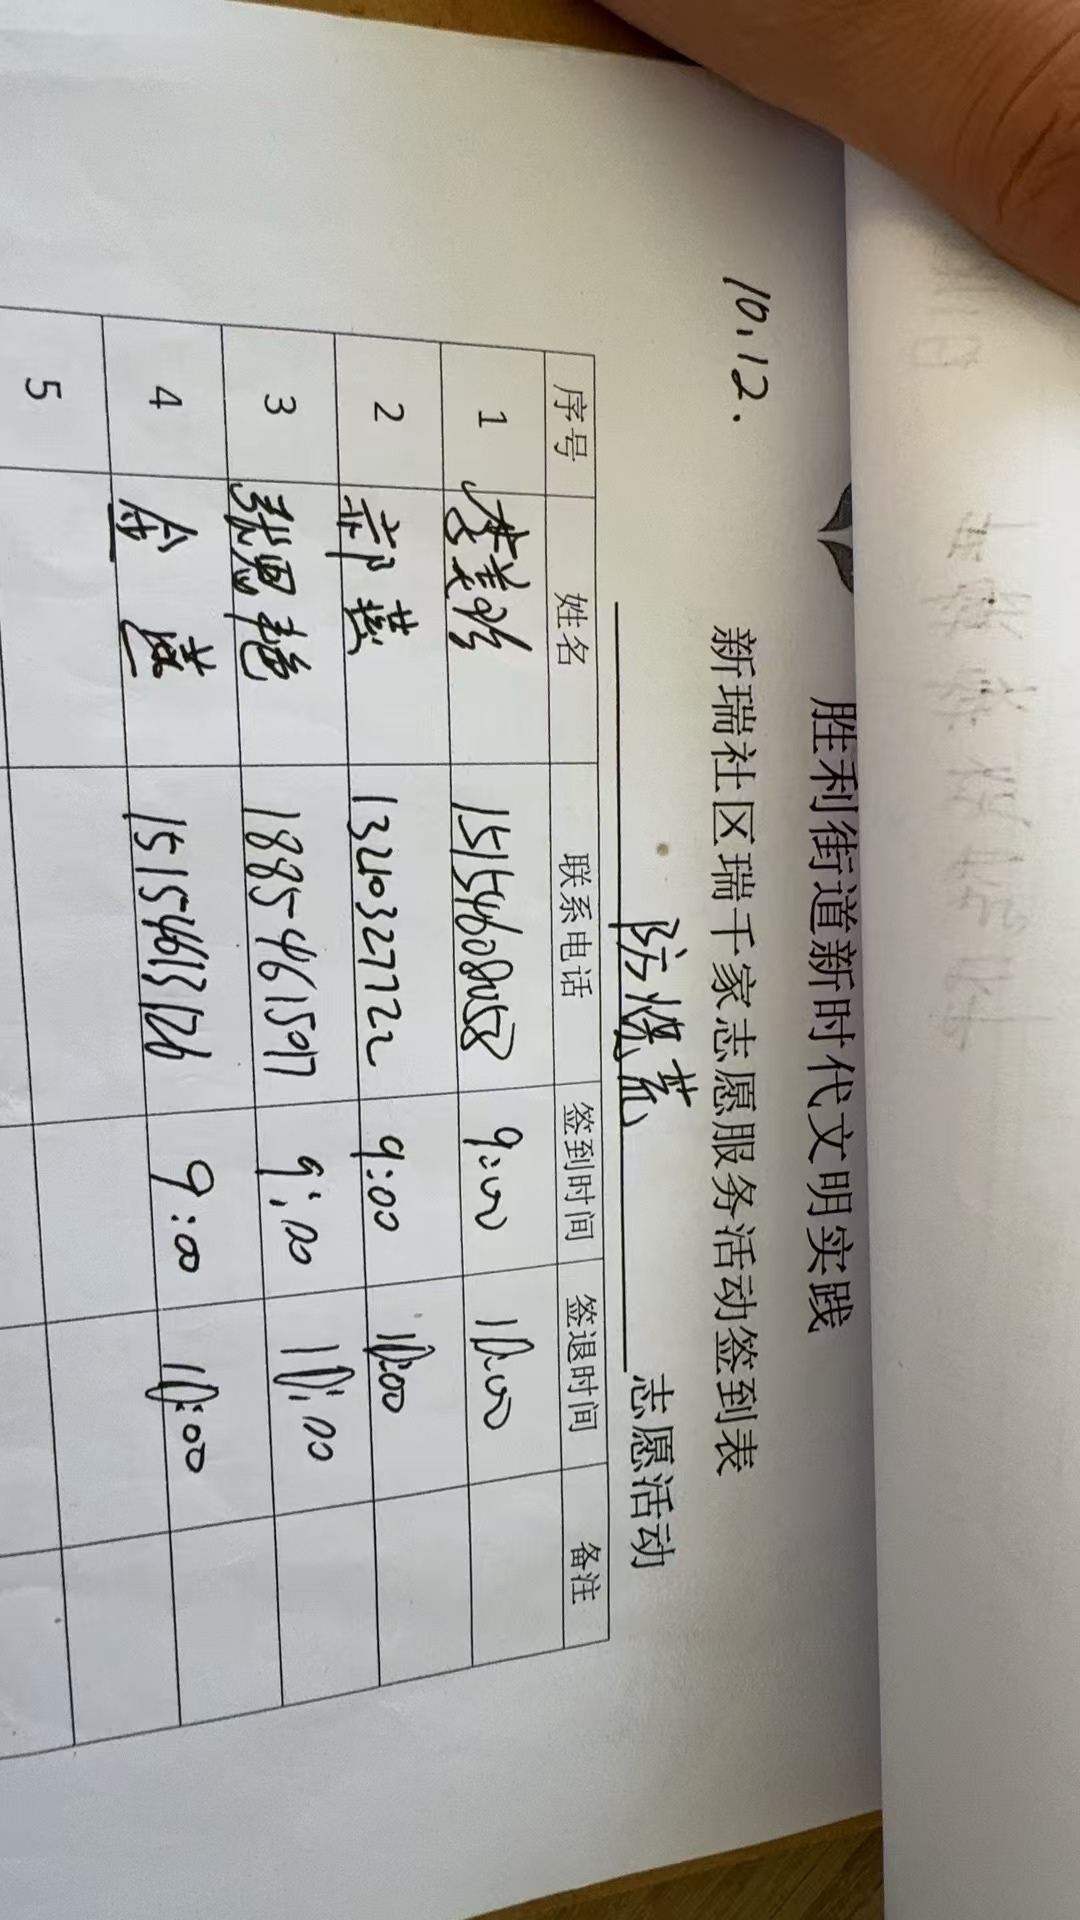 胜利街道新时代文明实践
10.12.
新瑞社区瑞千家志愿服务活动签到表
防煤荒 志愿活动
序号 姓名 联系电话 签到时间 签退时间 备注
1 李美 15154608058 9:00 10:00
2 郝燕 13210327722 9:00 10:00
3 张恩艳 18854615917 9:00 10:00
4 金燕 15154613126 9:00 10:00
5